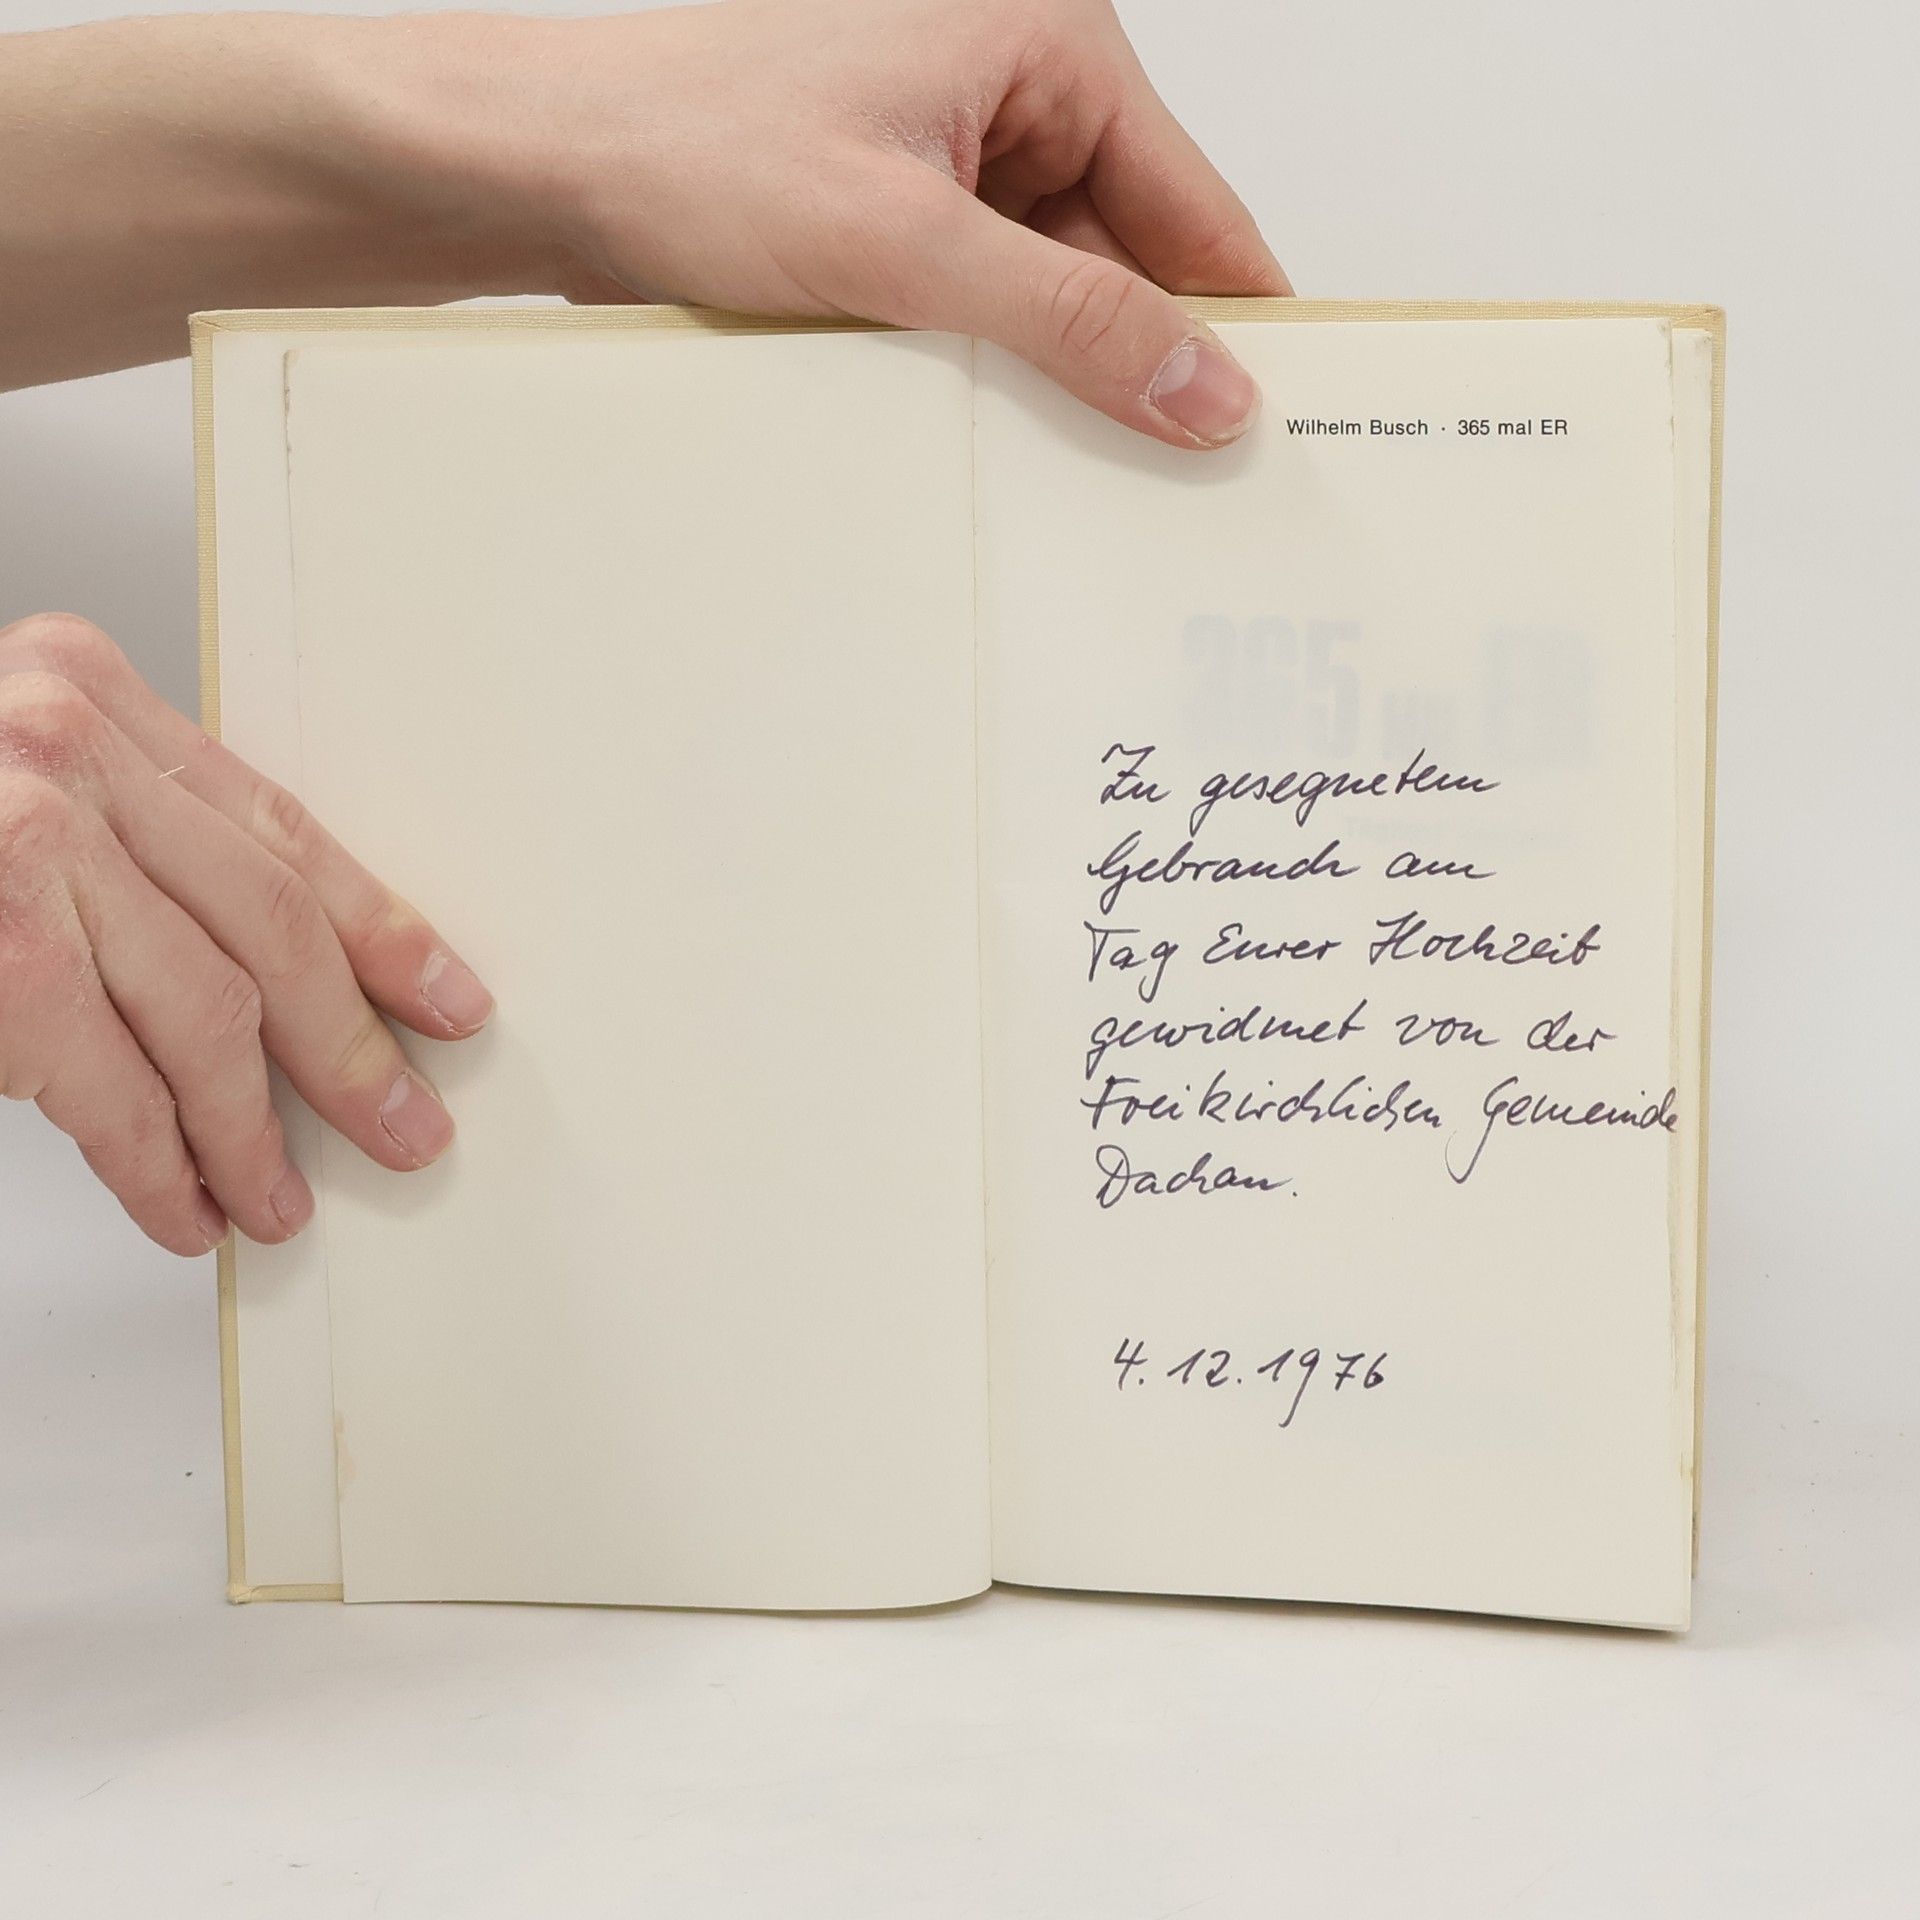 Wilhelm Busch · 365 mal ER
365 mal ER
Zu gesegnetem
Gebrauch am
Tag Eurer Hochzeit
gewidmet von der
Freikirchlichen Gemeinde
Dachau.
4.12.1976